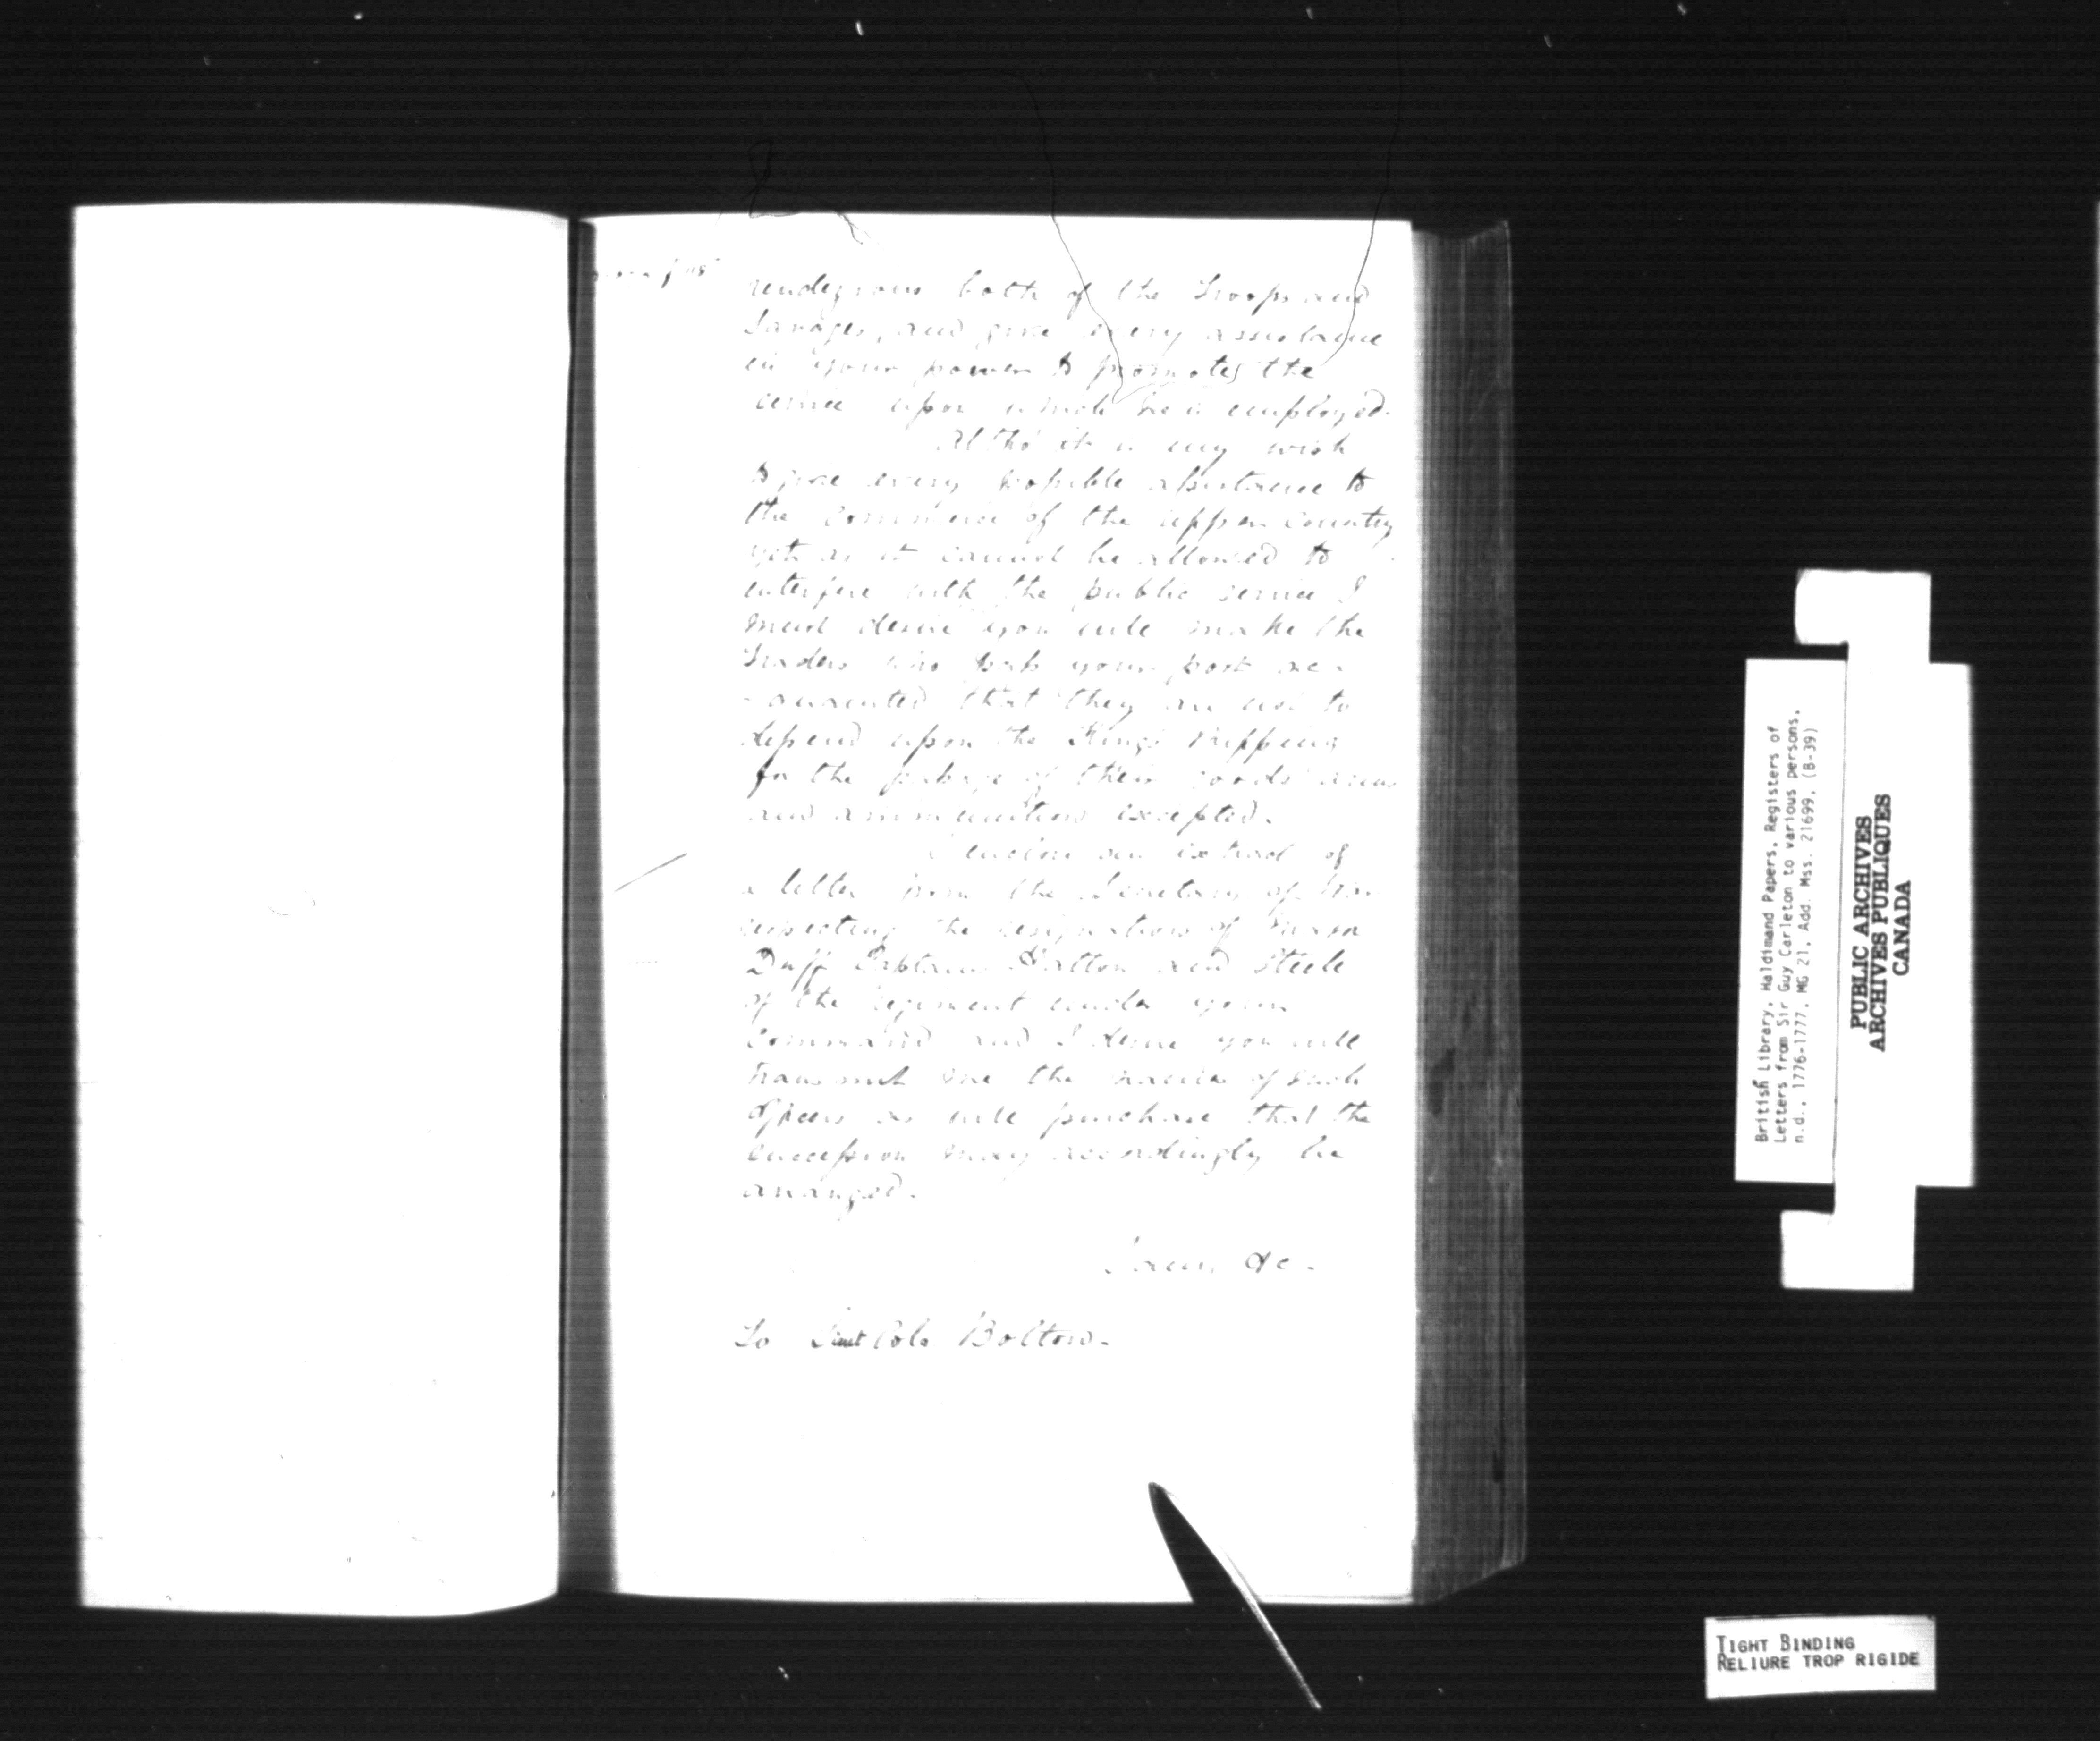 rendezvous both of the Troops and
Savages, and give every assistance
in your power to promote the
service upon which he is employed.
Altho' it is my wish
to give every possible assistance to
the Commerce of the upper Country
yet as it cannot be allowed to
interfere with the public service I
must desire you will make the
Traders who pass your post ac-
-quainted that they are not to
depend upon the King's Shipping
for the passage of their goods arms
and ammunition excepted.
I enclose an Extract of
a letter from the Secretary of War
respecting the resignations of Major
Duff Captains Hatton and Steele
of the regiment under your
Command and I desire you will
transmit me the names of such
officers as will purchase that the
succession may accordingly be
arranged.
I am, &c.
To Lieut Colo Bolton.
British Library, Haldimand Papers, Registers of
Letters from Sir Guy Carleton to various persons,
n.d., 1776-1777, MG 21, Add. Mss. 21699, (B-39)
PUBLIC ARCHIVES
ARCHIVES PUBLIQUES
CANADA
TIGHT BINDING
RELIURE TROP RIGIDE